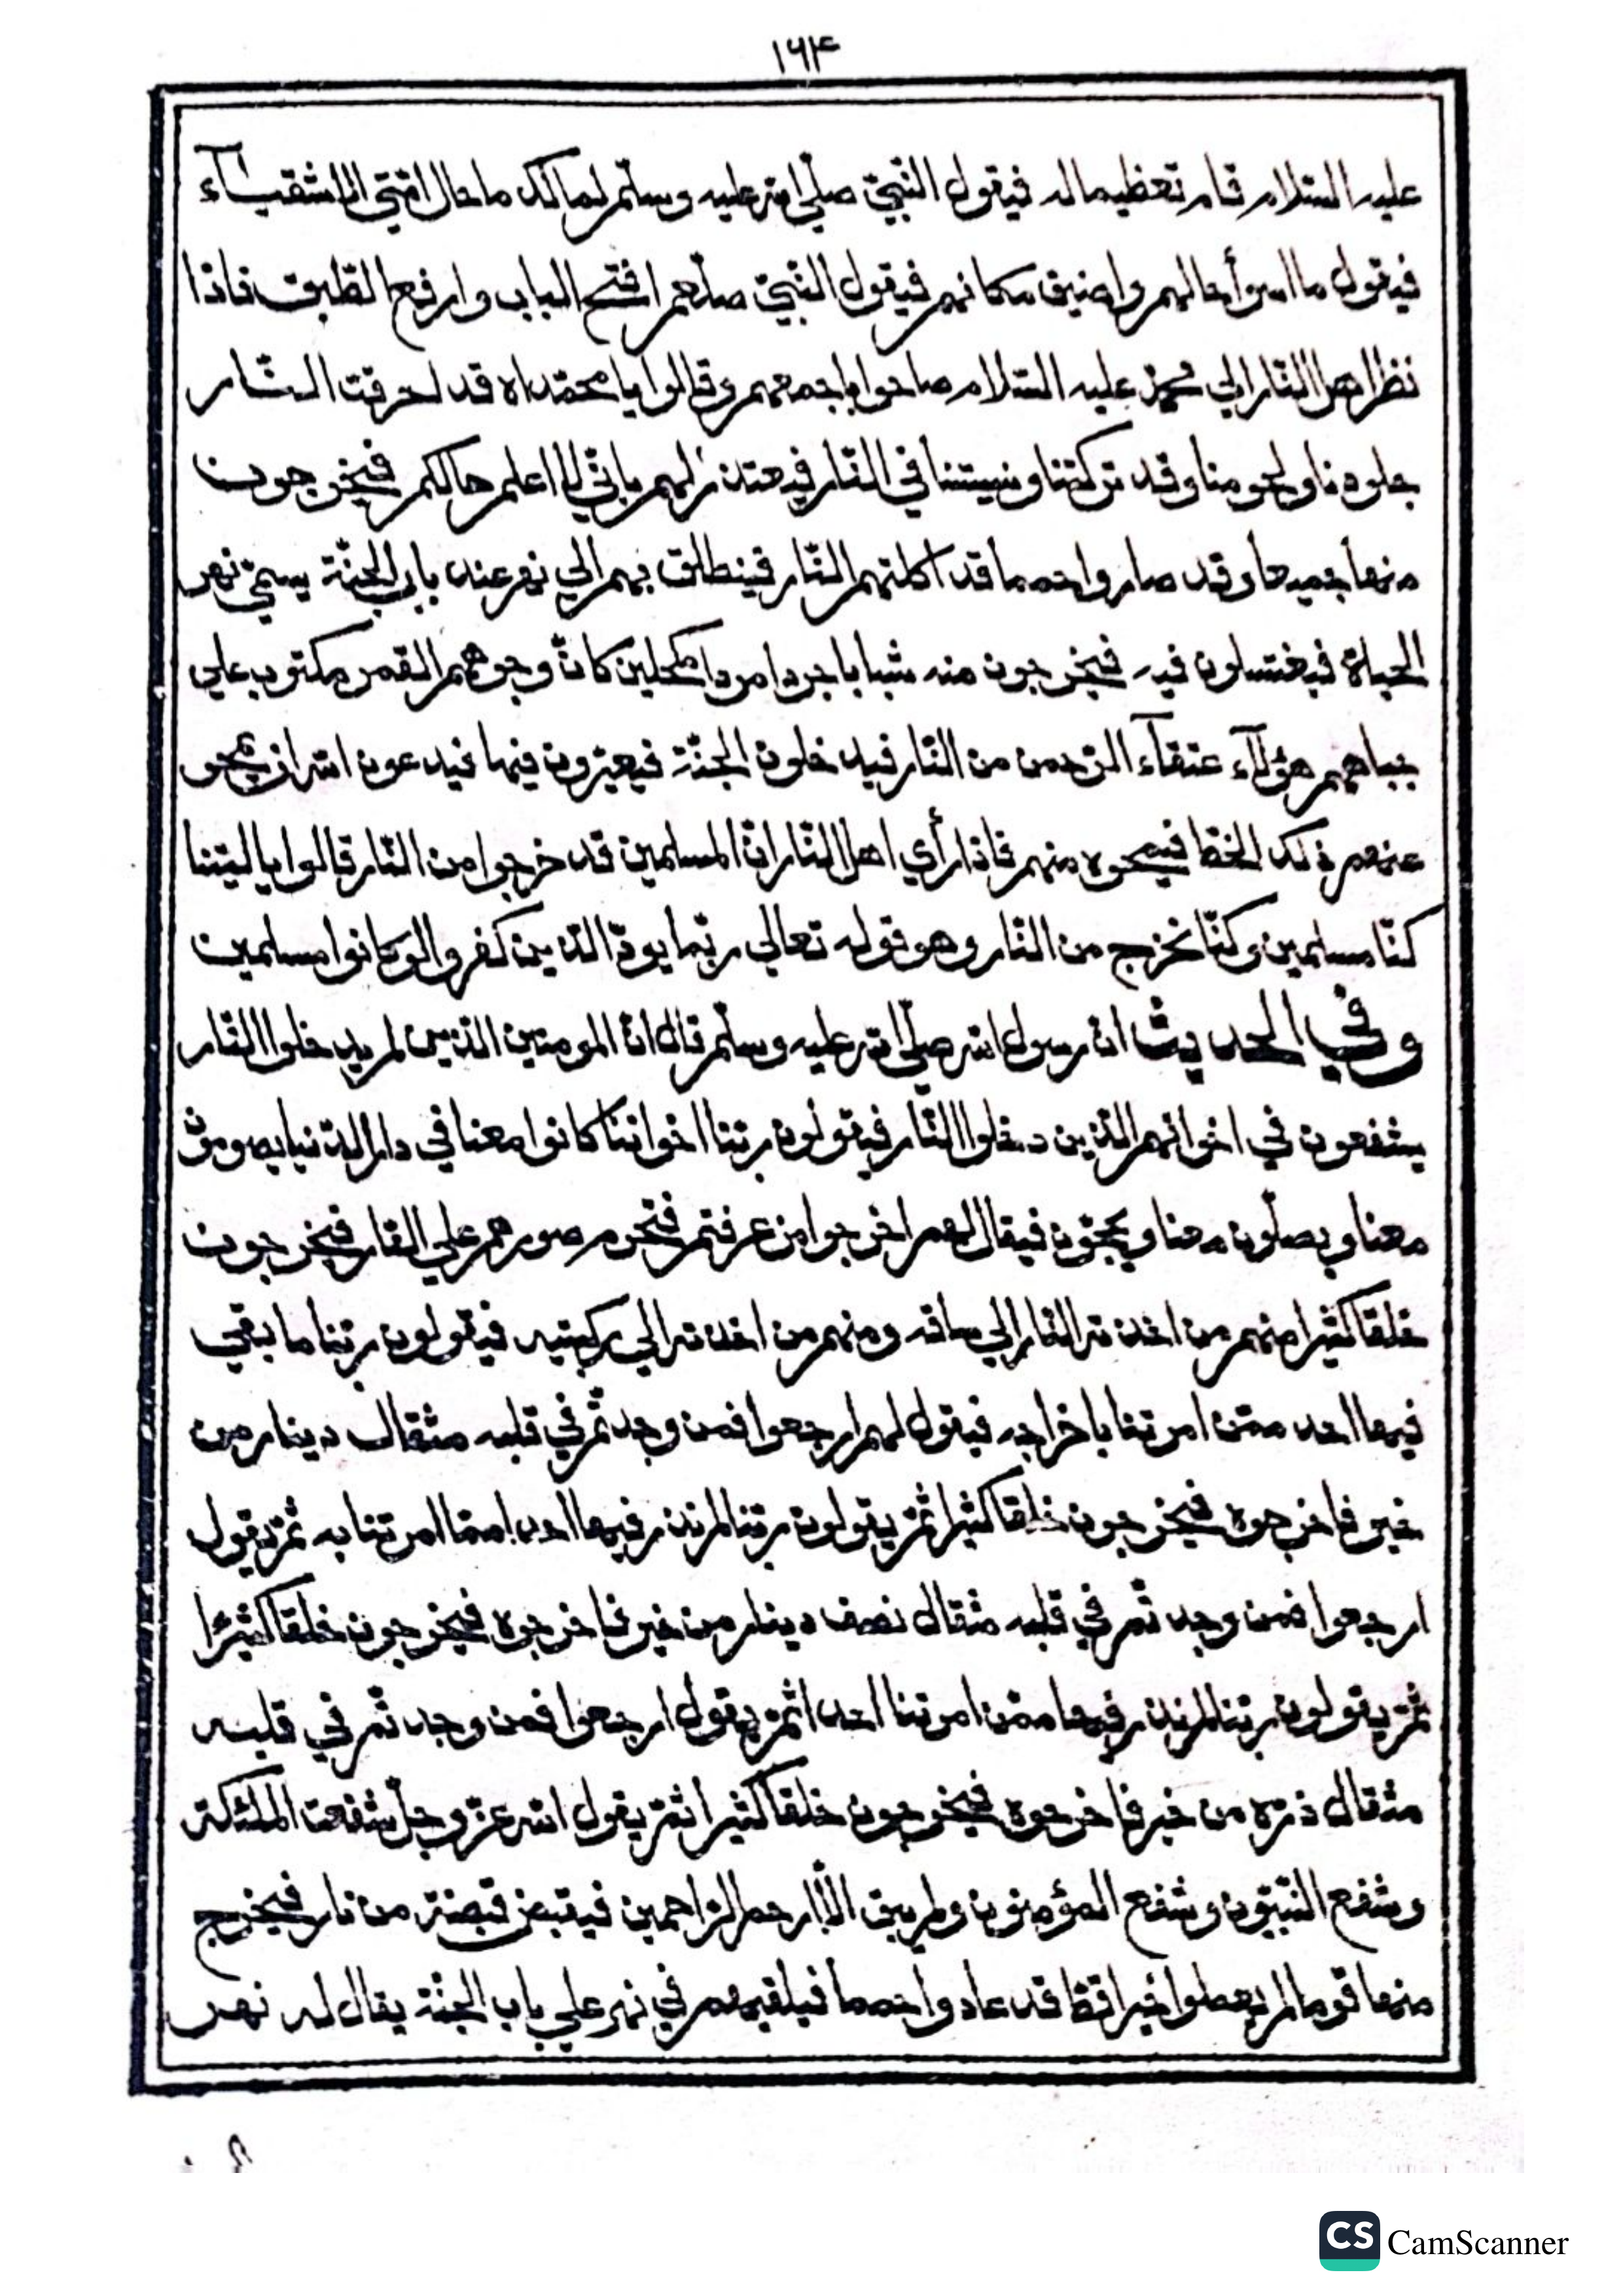 ١٦٤
عليه السّلام قام تعظيما له فيقول النّبيّ صلّي الله عليه وسلّم لمالك ما حال امّتي الاشقيآء
فيقول ما اسوأ حالهم واضيق مكانهم فيقول النّبيّ صلّعم افتح الباب وارفع الطّبق فاذا
نظر اهل النّار الي محمّد عليه السّلام صاحوا باجمعهم وقالوا يا محمّداه قد احرقت النّار
جلودنا ولحومنا وقد تركتنا ونسيتنا في النّار فيعتذر لهم بانّي لا اعلم حالكم فيخرجون
منها جميعا وقد صاروا حمما قد اكلتهم النّار فينطلق بهم الي نهر عند باب الجنّة يسمّي نهر
الحياة فيغتسلون فيه فيخرجون منه شبابا جردا مردا مكحلين كانّ وجوههم القمر مكتوب علي
جباههم هؤلآء عتقآء الرّحمن من النّار فيدخلون الجنّة فيعيّرون فيها فيدعون الله ان يمحو
عنهم ذلك الخطّ فيمحوه منهم فاذا رأي اهل النّار انّ المسلمين قد خرجوا من النّار قالوا يا ليتنا
كنّا مسلمين وكنّا نخرج من النّار وهو قوله تعالي ربّما يودّ الّذين كفروا لو كانوا مسلمين
وفي الحديث انّ رسول الله صلّي الله عليه وسلّم قال انّ المومنين الّذين لم يدخلوا النّار
يشفعون في اخوانهم الّذين دخلوا النّار فيقولون ربّنا اخواننا كانوا معنا في دار الدّنيا يصومون
معنا ويصلّون معنا ويحجّون فيقال لهم اخرجوا من عرفتم فتحرم صورهم علي النّار فيخرجون
خلقا كثيرا منهم من اخذته النّار الي ساقه ومنهم من اخذته الي ركبتيه فيقولون ربّنا ما بقي
فيها احد ممّن امرتنا باخراجه فيقول لهم ارجعوا فمن وجدتّم في قلبه مثقال دينار من
خير فاخرجوه فيخرجون خلقا كثيرا ثمّ يقولون ربّنا لم نذر فيها احدا ممّا امرتنا به ثمّ يقول
ارجعوا فمن وجدتّم في قلبه مثقال نصف دينار من خير فاخرجوه فيخرجون خلقا كثيرًا
ثمّ يقولون ربّنا لم نذر فيها ممّن امرتنا احدا ثمّ يقول ارجعوا فمن وجدتّم في قلبه
مثقال ذرّة من خير فاخرجوه فيخرجون خلقا كثيرا ثمّ يقول الله عزّ وجلّ شفعت الملئكة
وشفع النّبيّون وشفع المؤمنون ولم يبق الّا ارحم الرّاحمين فيقبض قبضة من نار فيخرج
منها قوما لم يعملوا خيرا قطّ قد عادوا حمما فيلقيهم في نهر علي باب الجنّة يقال له نهر
CS CamScanner